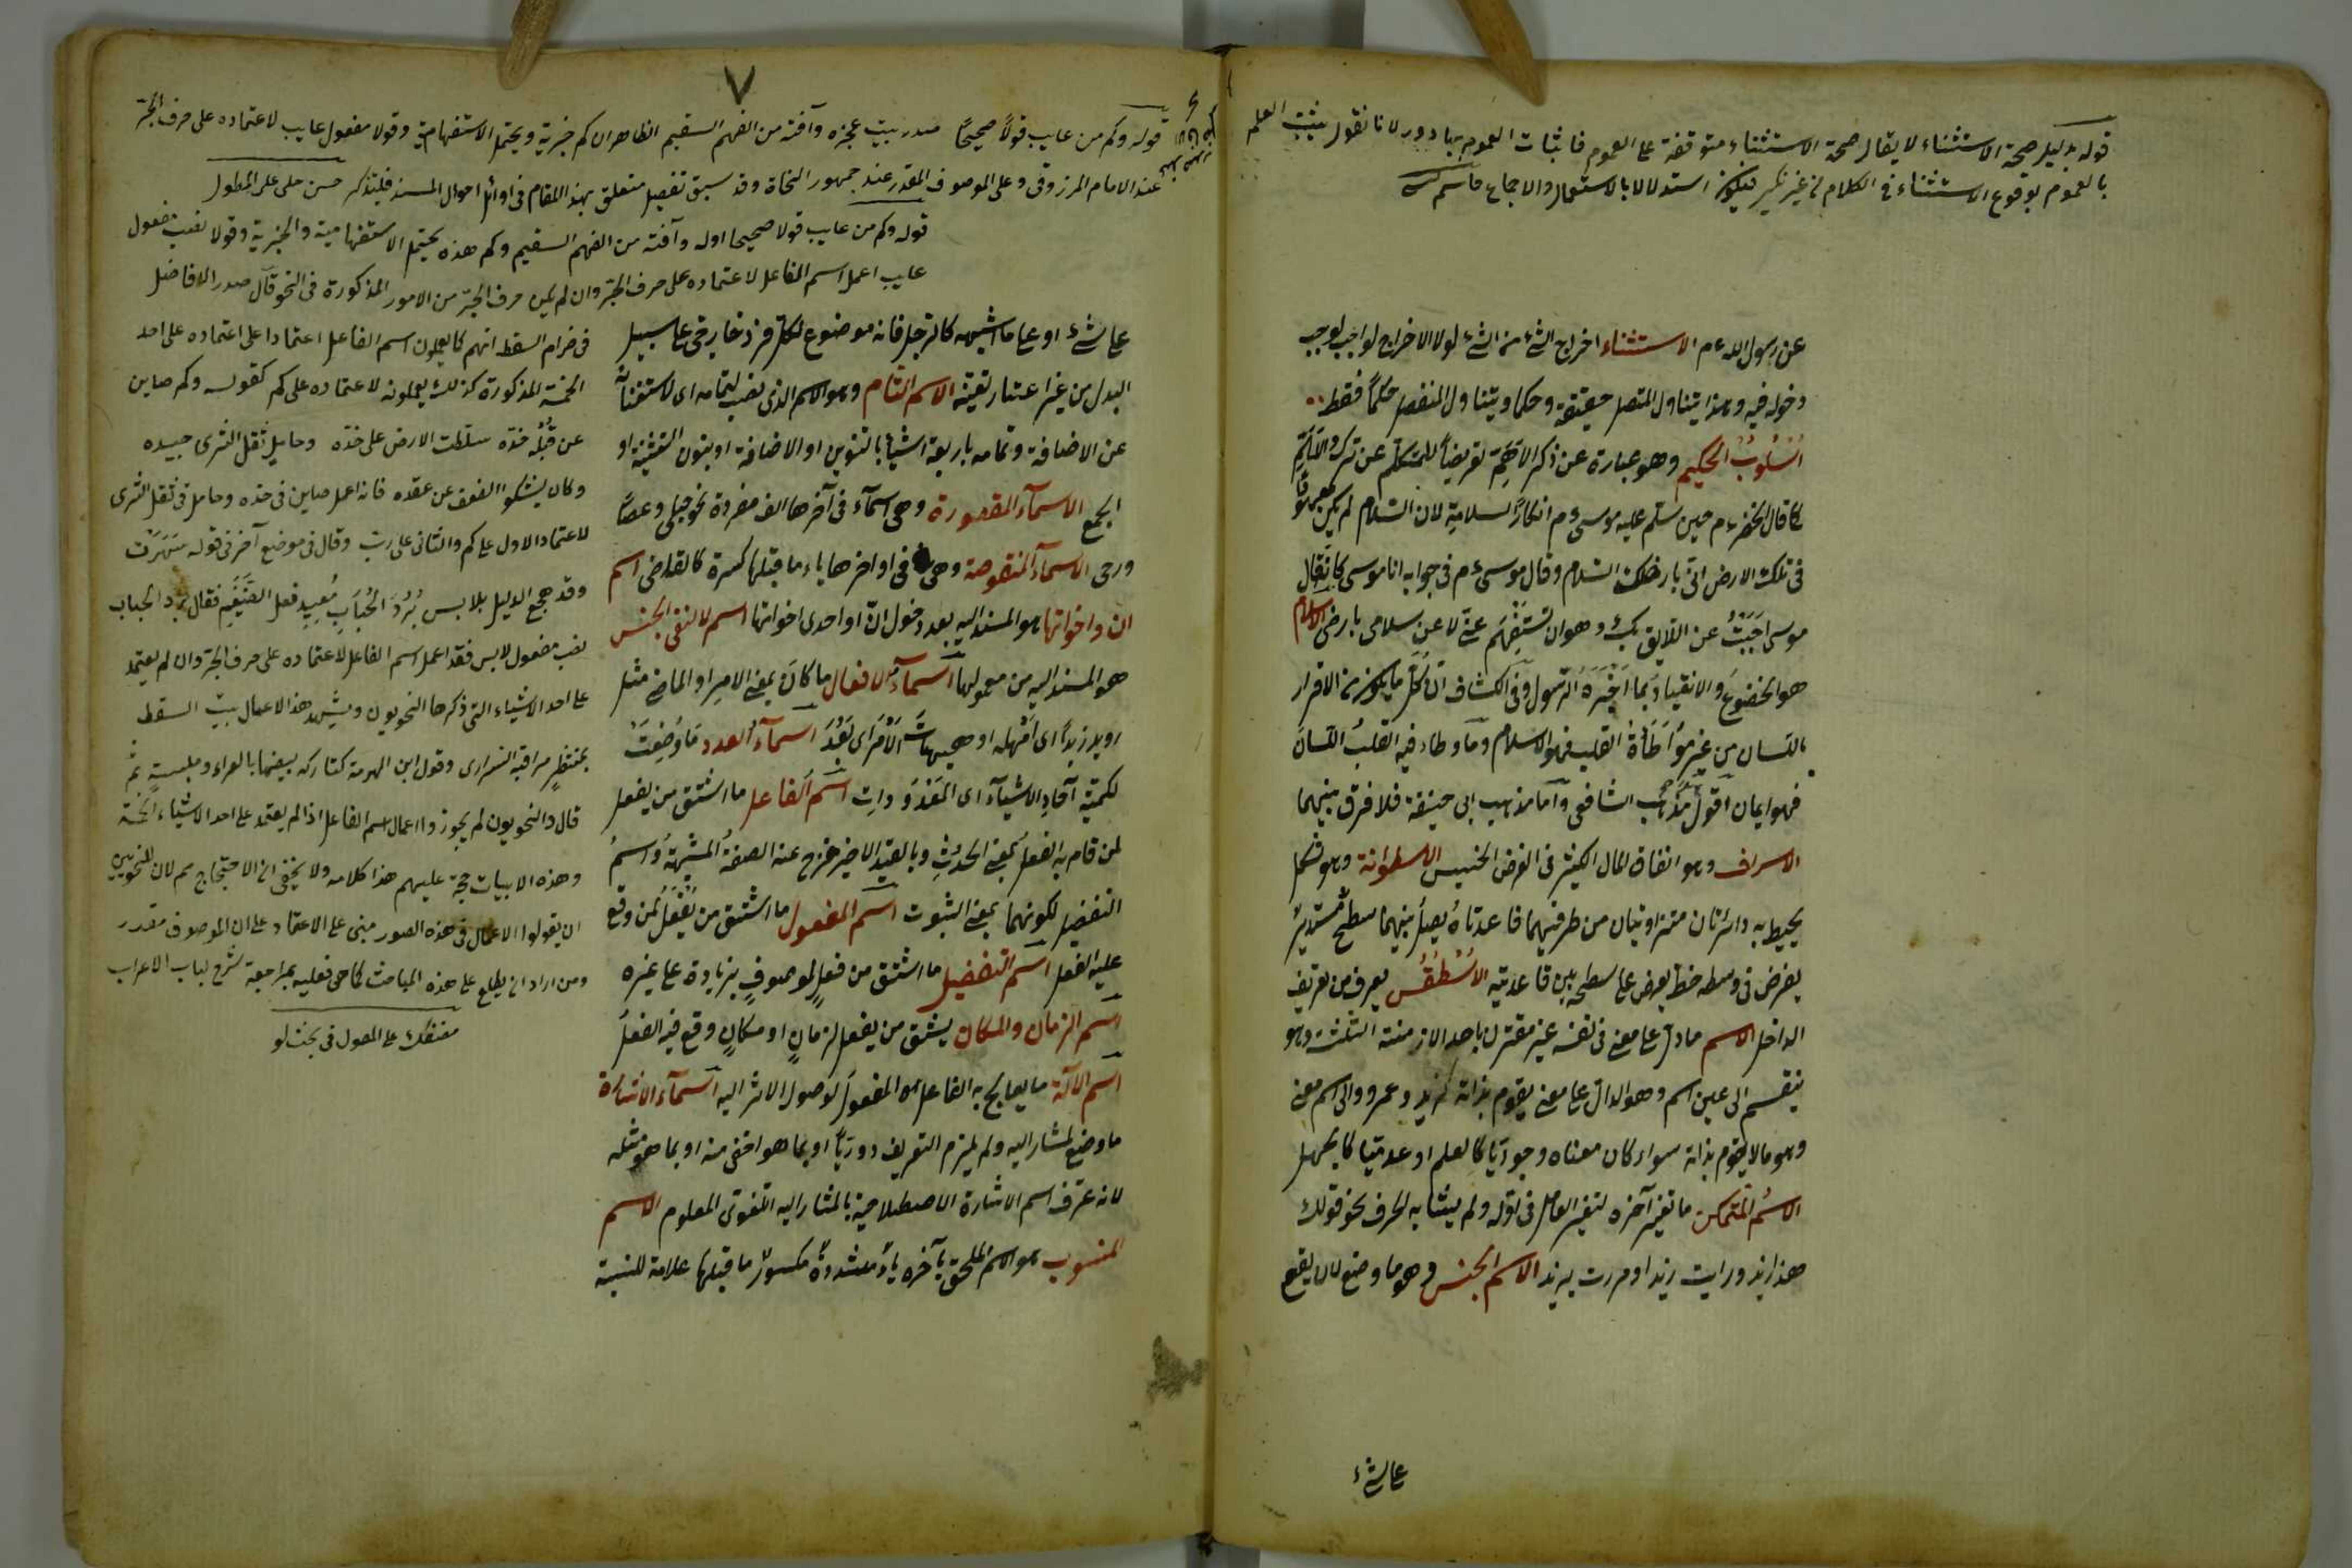 قوله بدليل صحة الاستثناء لا يقال صحة الاستثناء متوقفة على العموم فاثبات العموم بها دور لانا نقول يثبت العلم
بالعموم بوقوع الاستثناء في الكلام من غير نكير فيكون استدلالا بالاستعمال والاجماع
عن رسول الله عم الاستثناء اخراج الشئ من الشئ لولا الاخراج لوجب
دخوله فيه وهذا يتناول المتصل حقيقة وحكما ويتناول المنفصل حكمًا فقط
اُسْلُوبُ الحكيم وهو عبارة عن ذكر الاَهَمِّ تعريضًا للمتكلّم عن تركه الاَهَمّ
كما قال الخضر عم حين سلّم عليه موسى عم انكارًا لسلامه لان السلام لم يكن معهودًا
في تلك الارض انّى بارضك السلام وقال موسى عم في جوابه انا موسى كانه قال
موسى اَجَبْتُ عن اللايق بك وهو ان تستفهم عنّى لا عن سلامى بارضى الاسلام
هو الخضوع والانقياد بما اَخْبَرَهُ الرّسول وفي الكشاف ان كلّ ما يكون من الاقرار
باللسان من غير مُواطَأةُ القلب فهو الاسلام وما وطاء فيه القلبُ اللسان
فهو ايمان اقول هذا مذهب الشافعى واَمّا مذهب ابى حنيفة فلا فرق بينهما
الاسراف وهو انفاق المال الكثير في الغرض الخسيس الاسطوانة وهو شكل
يحيط به دائرتان متوازيتان من طرفيهما قاعدتاهُ يصل بينهما سطحٌ مستديرٌ
يفرض في وسطه خط يعرض على سطحه بين قاعدتيه الاُسْطُقُس يعرف من تعريف
الداخل الاسم ما دلّ على معنى في نفسه غير مقترن باحد الازمنة الثلثة وهو
ينقسم الى عين اسم وهو الدالّ على معنى يقوم بذاته كزيد وعمرو والى اسم معنى
وهو ما لا يقوم بذاته سواء كان معناه وجوديًّا كالعلم او عدميّا كالجهل
الاسمُ المتمكن ما تغيّر آخره لتغيّر العامل في اوّله ولم يشابه الحرف نحو قولك
هذا زيد ورايت زيدا ومررت بزيد الاسم الجنس وهو ما وضع لان يقع
على شئ
٧
قوله وكم من عايب قولاً صحيحًا صدر بيت عجزه وآفته من الفهم السقيم الظاهر ان كم خبرية ويحتمل الاستفهامية وقولا مفعول عايب لاعتماده على حرف الجرّ
عند الامام المرزوقى وعلى الموصوف المقدر عند جمهور النحاة وقد سبق تفصيل متعلق بهذا المقام في اوائل احوال المسند فليتذكر حسن جلبى على المطول
قوله وكم من عايب قولا صحيحا اوله وآفته من الفهم السقيم وكم هذه يحتمل الاستفهامية والخبرية وقولا نصب مفعول
عايب اعمل اسم الفاعل لاعتماده على حرف الجرّ وان لم يكن حرف الجرّ من الامور المذكورة في النحو قال صدر الافاضل
في ضرام السقط انهم كما يعملون اسم الفاعل اعتمادا على اعتماده على احد
الخمسة المذكورة كذلك يعملونه لاعتماده على كم كقوله وكم صاين
عن قُبْلَه خدّه سلّطت الارض على خدّه وحامل ثقل الثرى جيده
وكان يشكو الضعف عن عقده فانه اعمل صاين في خدّه وحامل في ثقل الثرى
لاعتماد الاول على كم والثانى على ربّ وقال في موضع آخر في قوله سَهِرَتْ
وقد هجع الدليل بلابس بُرْدَ الحُبَابِ مُعِيدِ فعل الضَيْغَمِ فقال برد الحباب
نصب مفعول لابس فقد اعمل اسم الفاعل لاعتماده على حرف الجرّ وان لم يعتمد
على احد الاشياء التى ذكرها النحويون ويشهد هذا الاعمال بيت السقط
بمنتظرٍ مراقبة السرارى وقول ابن الهرمة كتاركة بيضها بالعراء وملبسةٍ ثم
قال والنحويون لم يجوزوا اعمال اسم الفاعل اذا لم يعتمد على احد الاشياء الخمسة
وهذه الابيات حجة عليهم هذا كلامه ولا يخفى ان الاحتجاج مم لان للنحويين
ان يقولوا الاعمال في هذه الصور مبنى على الاعتماد على ان الموصوف مقدر
ومن اراد ان يطلع على هذه المباحث كما هى فعليه بمراجعة شرح لباب الاعراب
على المطول في بحث لو
على شئ او على ما اشبهه كالرجل فانه موضوع لكلّ فرد خارجى على سبيل
البدل من غير اعتبار تعيّنه الاسم التّام وهو الاسم الذى نصب لتمامه اى لاستغنائه
عن الاضافة وتمامه باربعة اشياء بالتنوين او الاضافة او بنون التثنية او
الجمع الاسمآء المقصورة وهى اسمآء في آخرها الف مفردة نحو حبلى وعصًا
ورحى الاسمآء المنقوصة وهى في اواخرها ياء ما قبلها كسرة كالقاضى اسم
ان واخواتها هو المسند اليه بعد دخول انّ او احدى اخواتها اسم لا لنفى الجنس
هو المسند اليه من معموليها اسمآء الافعال ما كانَ بمعنى الامر او الماضى مثل
رويد زيدًا اى اَمْهِله او هيهاتَ الاَمْرُ اى بَعُدَ اسمآءُ العدد مَا وُضِعَتْ
لكميّة آحادِ الاشيآء اى المَعْدُوداتِ اسم الفاعل ما اشتق من يفعل
لمن قام به الفعلُ بمعنى الحدُوثِ وبالقيد الاخير خرج عنه الصفةُ المشبهةُ واسمُ
التفضيل لكونهما بمعنى الثبوت اسم المفعول ما اشتق من يُفْعَلُ لمن وقع
عليه الفعل اسم التفضيل ما اشتق من فعلٍ لموصوفٍ بزيادة على غيره
اسم الزمان والمكان يشتق من يفعل لزمانٍ او مكانٍ وقع فيه الفعلُ
اسم الآلة ما يعالج به الفاعل المفعولَ لوصول الاثر اليه اسمآء الاشارة
ما وضع لمشار اليه ولم يلزم التعريف دوريّا او بما هو اخفى منه او بما هو مثله
لانه عرّف اسم الاشارة الاصطلاحية بالمشار اليه اللغوىّ المعلوم الاسم
المنسوب هو الاسم الملحق بآخره ياءٌ مشدّدةٌ مكسورٌ ما قبلها علامة للنسبة